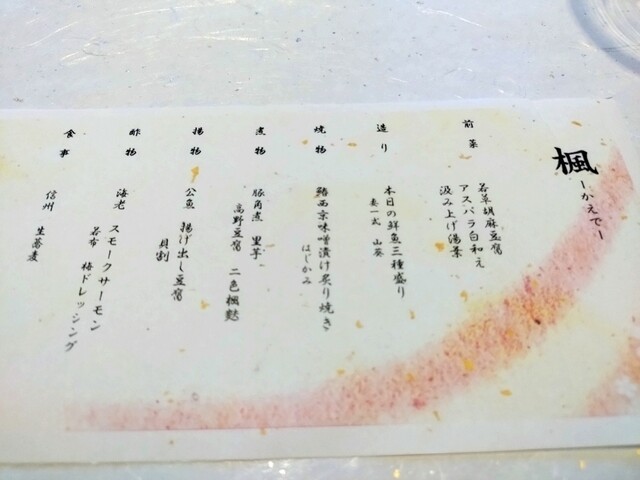 楓
ーかえでー
前菜
若草胡麻豆腐
アスパラ白和え
汲み上げ湯葉
造り
本日の鮮魚三種盛り
妻一式 山葵
焼物
鰆西京味噌漬け炙り焼き
はじかみ
煮物
豚角煮 里芋
高野豆腐 二色楓麩
揚物
公魚 揚げ出し豆腐
貝割
酢物
海老 スモークサーモン
若布 梅ドレッシング
食事
信州 生蕎麦